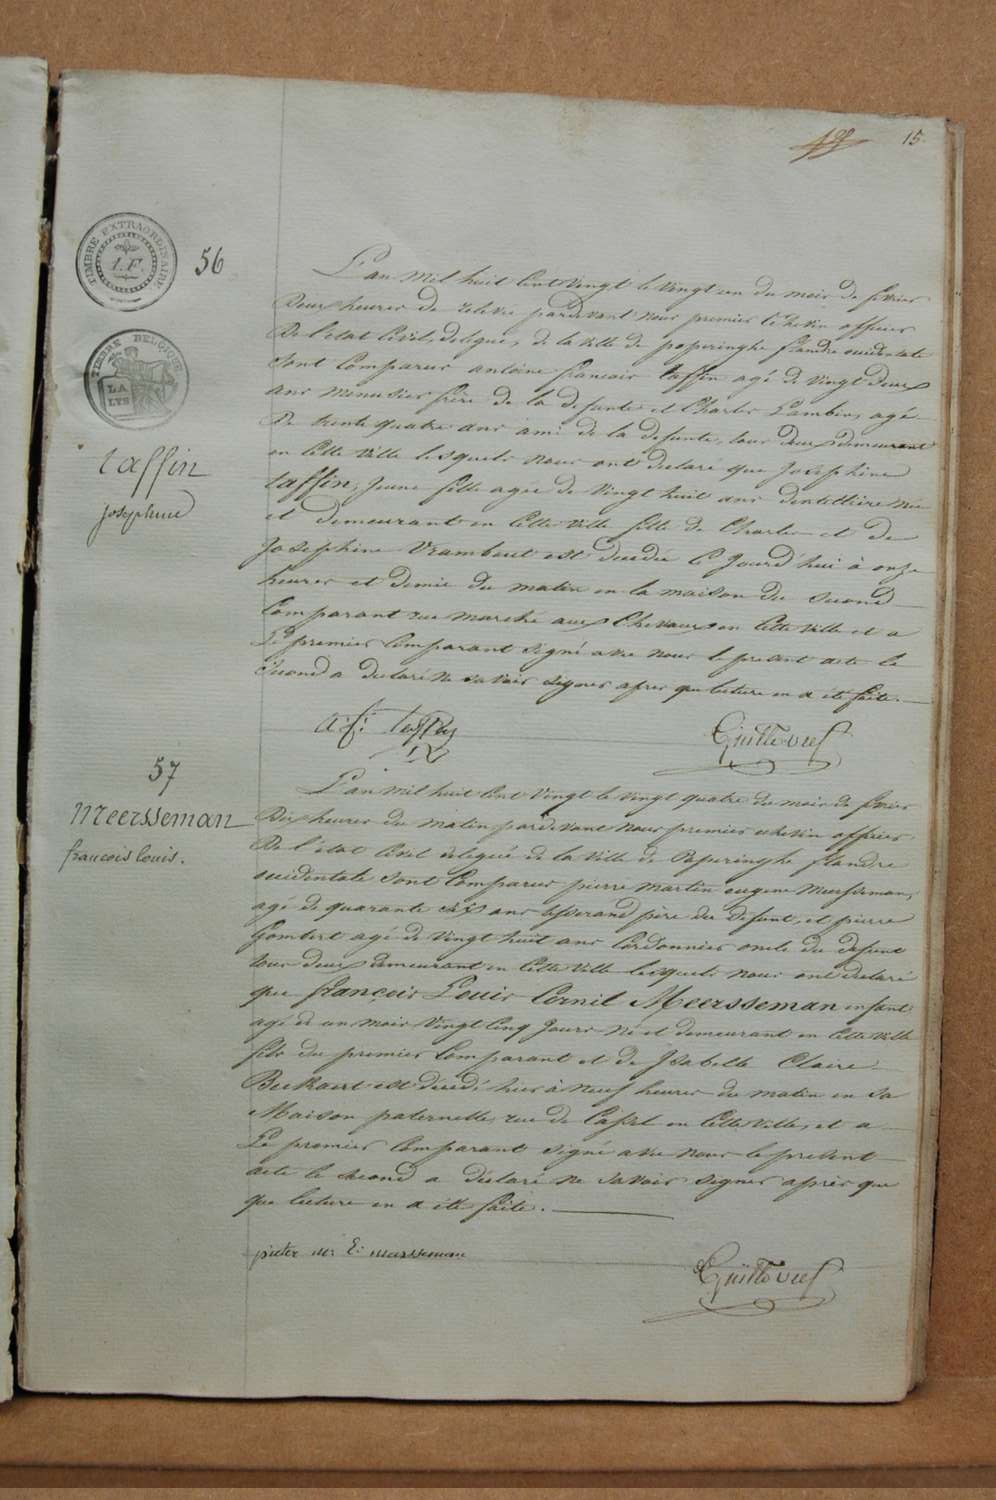 15.
TIMBRE EXTRAORDINAIRE
1.F.
56
TIMBRE BELGIQUE
LA
LYS
taffin
josephine
L'an mil huit Cent Vingt le Vingt un du mois de fevrier
Deux heures de relevée pardevant nous premier Echevin officier
De l'etat Civil, delegué, de la Ville de poperinghe flandre occidentale
Sont Comparus antoine francois taffin agé de Vingt deux
ans menuisier frère de la defunte et Charles Lambin, agé
De trente quatre ans ami de la defunte, tous deux demeurant
en Cette Ville lesquels nous ont declaré que Josephine
taffin, Jeune fille agée de Vingt huit ans dentelliere née
et demeurant en Cette Ville fille de Charles et de
Josephine Vrambout est decedée Ce Jourd'hui à onze
heures et demie du matin en la maison du second
Comparant rue marché aux Chevaux en Cette Ville et a
Le premier Comparant signé avec nous le present acte le
Second a declaré ne savoir signer apres que lecture en a été faite.
a: f: taffin
57
Meersseman
francois louis.
L'an mil huit Cent Vingt le Vingt quatre du mois de fevrier
Dix heures du matin pardevant nous premier echevin officier
De l'etat Civil delegué de la Ville de Poperinghe flandre
occidentale Sont Comparus pierre martin eugene Meersseman,
agé de quarante six ans tisserand père du defunt, et pierre
Gombert agé de Vingt huit ans Cordonnier oncle du defunt
tous deux demeurant en Cette Ville lesquels nous ont declaré
que françois Louis Cornil Meersseman enfant
agé d un mois Vingt Cinq Jours né et demeurant en Cette Ville
fils du premier Comparant et de Isabelle Claire
Beckaert est decedé hier à neuf heures du matin en sa
Maison paternelle, rue de Cassel en Cette Ville, et a
Le premier Comparant signé avec nous le present
acte le second a déclaré ne savoir signer après que
que lecture en a été faite.
pieter m: E: meersseman